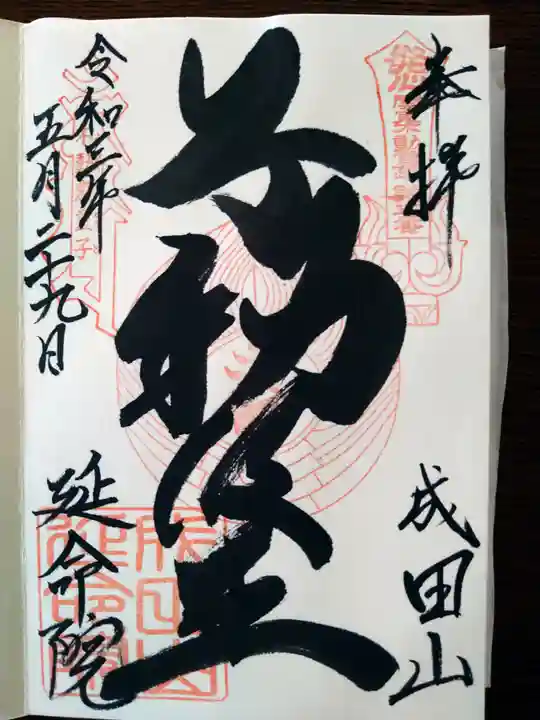 奉拝
成田山
不動明王
令和三年
五月二十九日
延命院